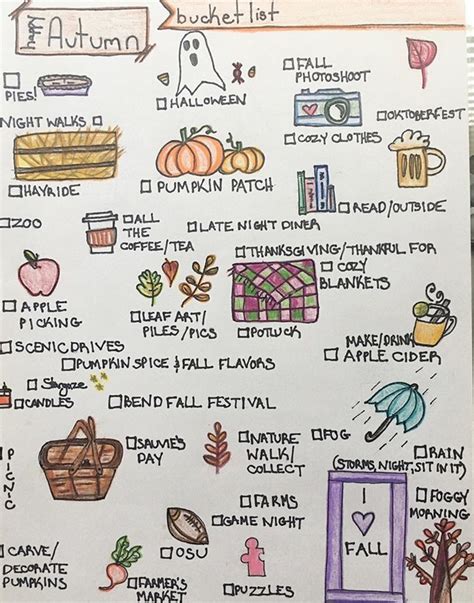 happy Autumn bucket list
PIES!
HALLOWEEN
FALL
PHOTOSHOOT
OKTOBERFEST
NIGHT WALKS
COZY CLOTHES
HAYRIDE
PUMPKIN PATCH
READ/OUTSIDE
ZOO
ALL
THE
COFFEE/TEA
LATE NIGHT DINER
THANKSGIVING/THANKFUL FOR
COZY
BLANKETS
APPLE
PICKING
LEAF ART/
PILES/PICS
POTLUCK
MAKE/DRINK
APPLE CIDER
SCENIC DRIVES
PUMPKIN SPICE & FALL FLAVORS
Stargaze
CANDLES
BEND FALL FESTIVAL
PICNIC
SAUVIE'S
DAY
NATURE
WALK/
COLLECT
FOG
RAIN
(STORMS, NIGHT, SIT IN IT)
FARMS
GAME NIGHT
I
FALL
FOGGY
MORNING
CARVE/
DECORATE
PUMPKINS
FARMER'S
MARKET
OSU
PUZZLES